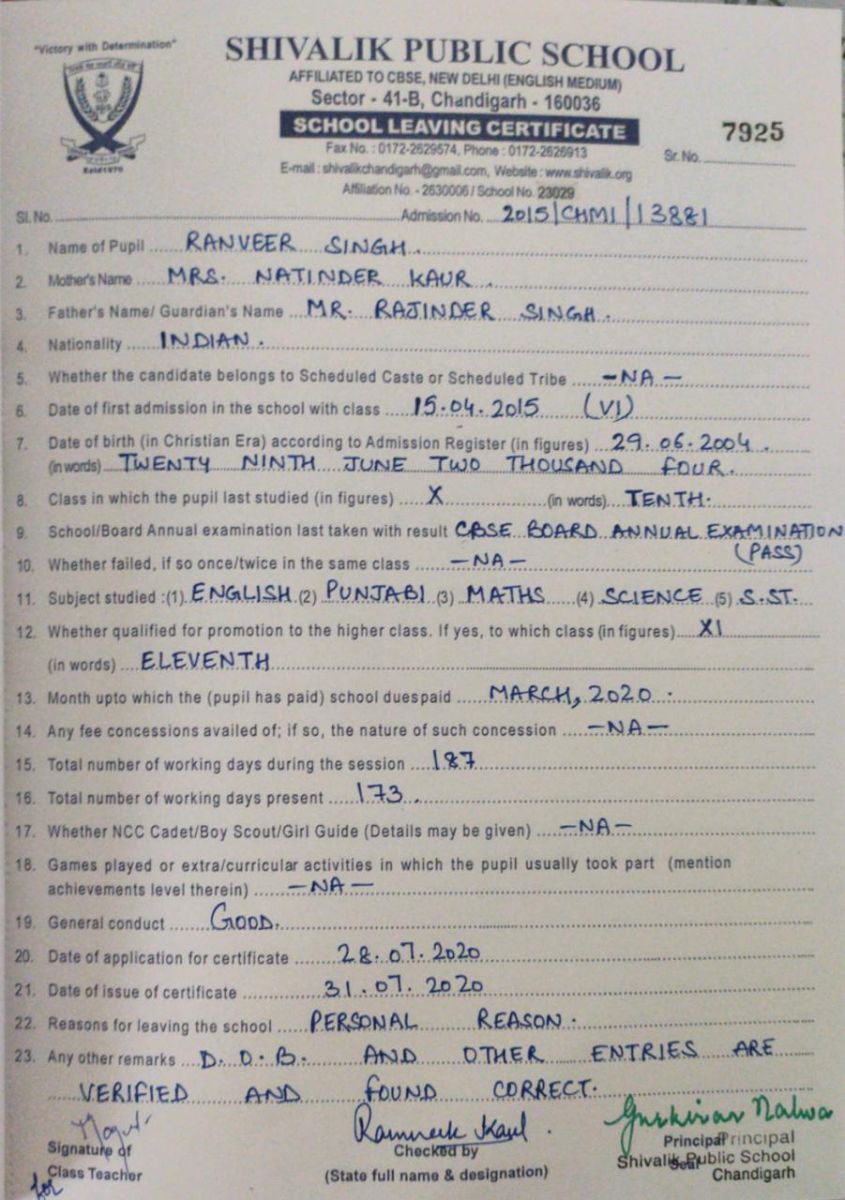 "Victory with Determination"
SHIVALIK PUBLIC SCHOOL
AFFILIATED TO CBSE, NEW DELHI (ENGLISH MEDIUM)
Sector - 41-B, Chandigarh - 160036
SCHOOL LEAVING CERTIFICATE
Fax No. : 0172-2629574, Phone : 0172-2626913
Sr. No. 7925
E-mail : shivalikchandigarh@gmail.com, Website : www.shivalik.org
Affiliation No. - 2630006 / School No. 23029
Estd 1970
Sl. No. Admission No. 2015/CHMI/13881
1. Name of Pupil RANVEER SINGH.
2. Mother's Name MRS. NATINDER KAUR.
3. Father's Name/ Guardian's Name MR. RAJINDER SINGH.
4. Nationality INDIAN.
5. Whether the candidate belongs to Scheduled Caste or Scheduled Tribe -NA-
6. Date of first admission in the school with class 15.04.2015 (VI)
7. Date of birth (in Christian Era) according to Admission Register (in figures) 29.06.2004.
(in words) TWENTY NINTH JUNE TWO THOUSAND FOUR.
8. Class in which the pupil last studied (in figures) X (in words) TENTH.
9. School/Board Annual examination last taken with result CBSE BOARD ANNUAL EXAMINATION
(PASS)
10. Whether failed, if so once/twice in the same class -NA-
11. Subject studied :(1) ENGLISH (2) PUNJABI (3) MATHS (4) SCIENCE (5) S.ST.
12. Whether qualified for promotion to the higher class. If yes, to which class (in figures) XI
(in words) ELEVENTH
13. Month upto which the (pupil has paid) school duespaid MARCH, 2020.
14. Any fee concessions availed of; if so, the nature of such concession -NA-
15. Total number of working days during the session 187
16. Total number of working days present 173.
17. Whether NCC Cadet/Boy Scout/Girl Guide (Details may be given) -NA-
18. Games played or extra/curricular activities in which the pupil usually took part (mention
achievements level therein) -NA-
19. General conduct GOOD.
20. Date of application for certificate 28.07.2020
21. Date of issue of certificate 31.07.2020
22. Reasons for leaving the school PERSONAL REASON.
23. Any other remarks D.O.B. AND OTHER ENTRIES ARE
VERIFIED AND FOUND CORRECT.
Ramneek Kaul. Gurkiran Nalwa
Signature of Checked by Principal Principal
Class Teacher (State full name & designation) Seal Shivalik Public School
for Chandigarh